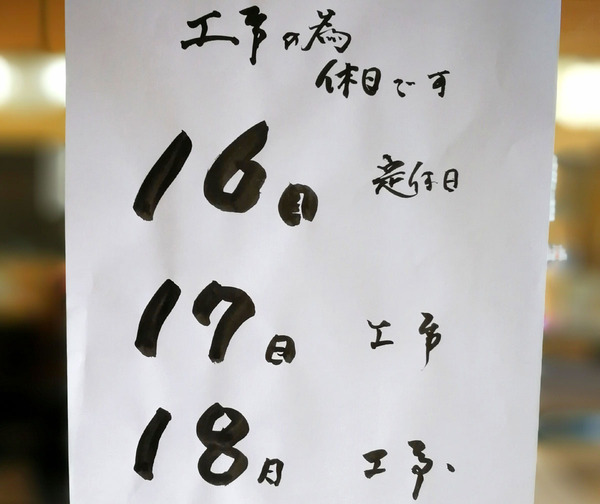 工事の為
休日です
16日 定休日
17日 工事
18日 工事、